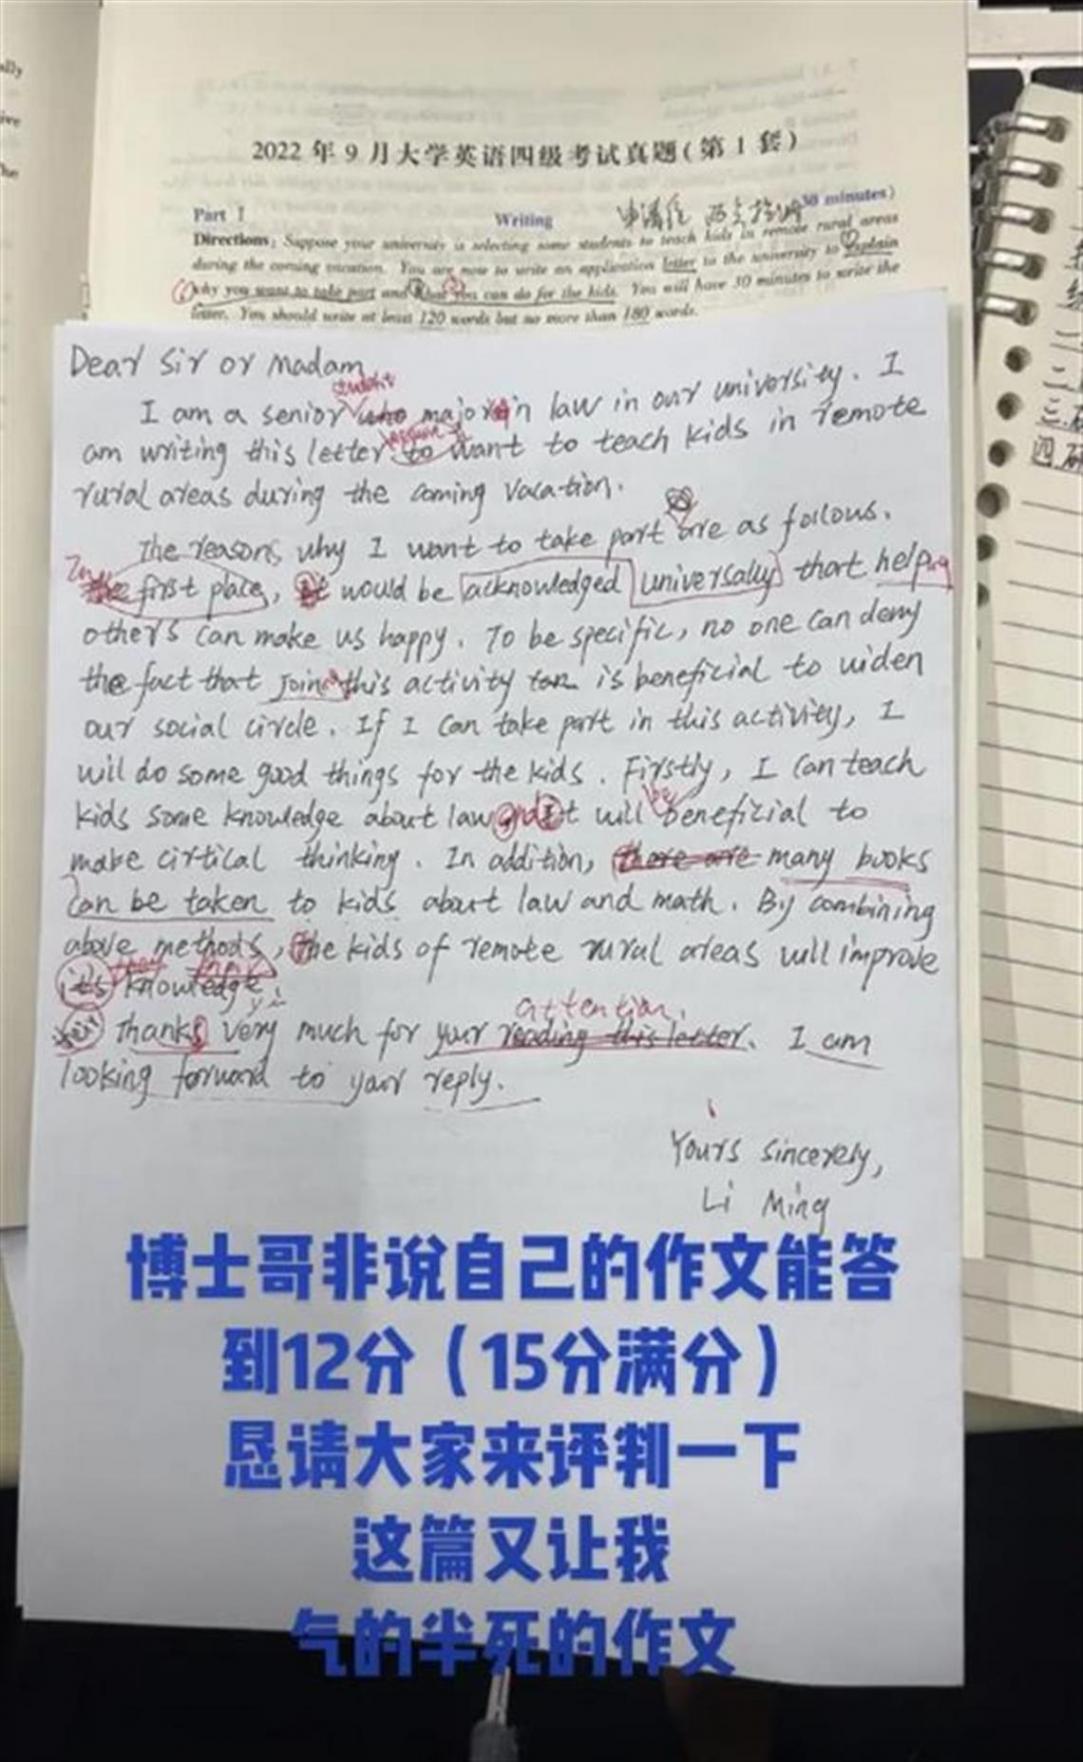 ally
ive
The
2022年9月大学英语四级考试真题(第1套)
Part I Writing 30 minutes)
Directions: Suppose your university is selecting some students to teach kids in remote rural areas
during the coming vacation. You are now to write an application letter to the university to explain
why you want to take part and what you can do for the kids. You will have 30 minutes to write the
letter. You should write at least 120 words but no more than 180 words.
Dear Sir or Madam
student
I am a senior who major in law in our university. I
am writing this letter to want to teach kids in remote
rural areas during the coming vacation.
The reasons why I want to take part are as follows.
In the first place, it would be acknowledged universally that helping
others can make us happy. To be specific, no one can deny
the fact that join this activity can is beneficial to widen
our social circle. If I can take part in this activity, I
will do some good things for the kids. Firstly, I can teach
be
kids some knowledge about law and It will beneficial to
make cirtical thinking. In addition, there are many books
can be taken to kids about law and math. By combining
above methods, the kids of remote rural areas will improve
their
its knowledge.
attention.
Thanks very much for your reading this letter. I am
looking forward to your reply.
Yours sincerely,
Li Ming
博士哥非说自己的作文能答
到12分（15分满分）
恳请大家来评判一下
这篇又让我
气的半死的作文
二
三
四